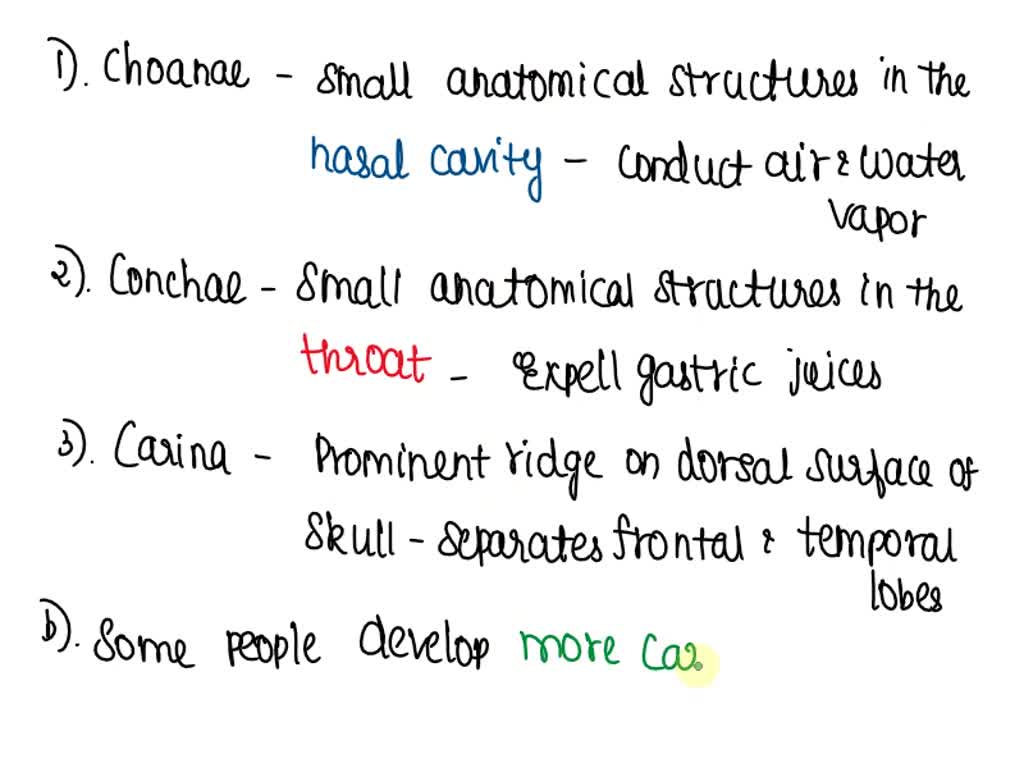 1). Choanae - small anatomical structures in the
nasal cavity - conduct air & water
vapor
2). Conchae - small anatomical structures in the
throat - Expell gastric juices
3). Carina - Prominent ridge on dorsal surface of
skull - separates frontal & temporal
lobes
b). Some people develop more Car